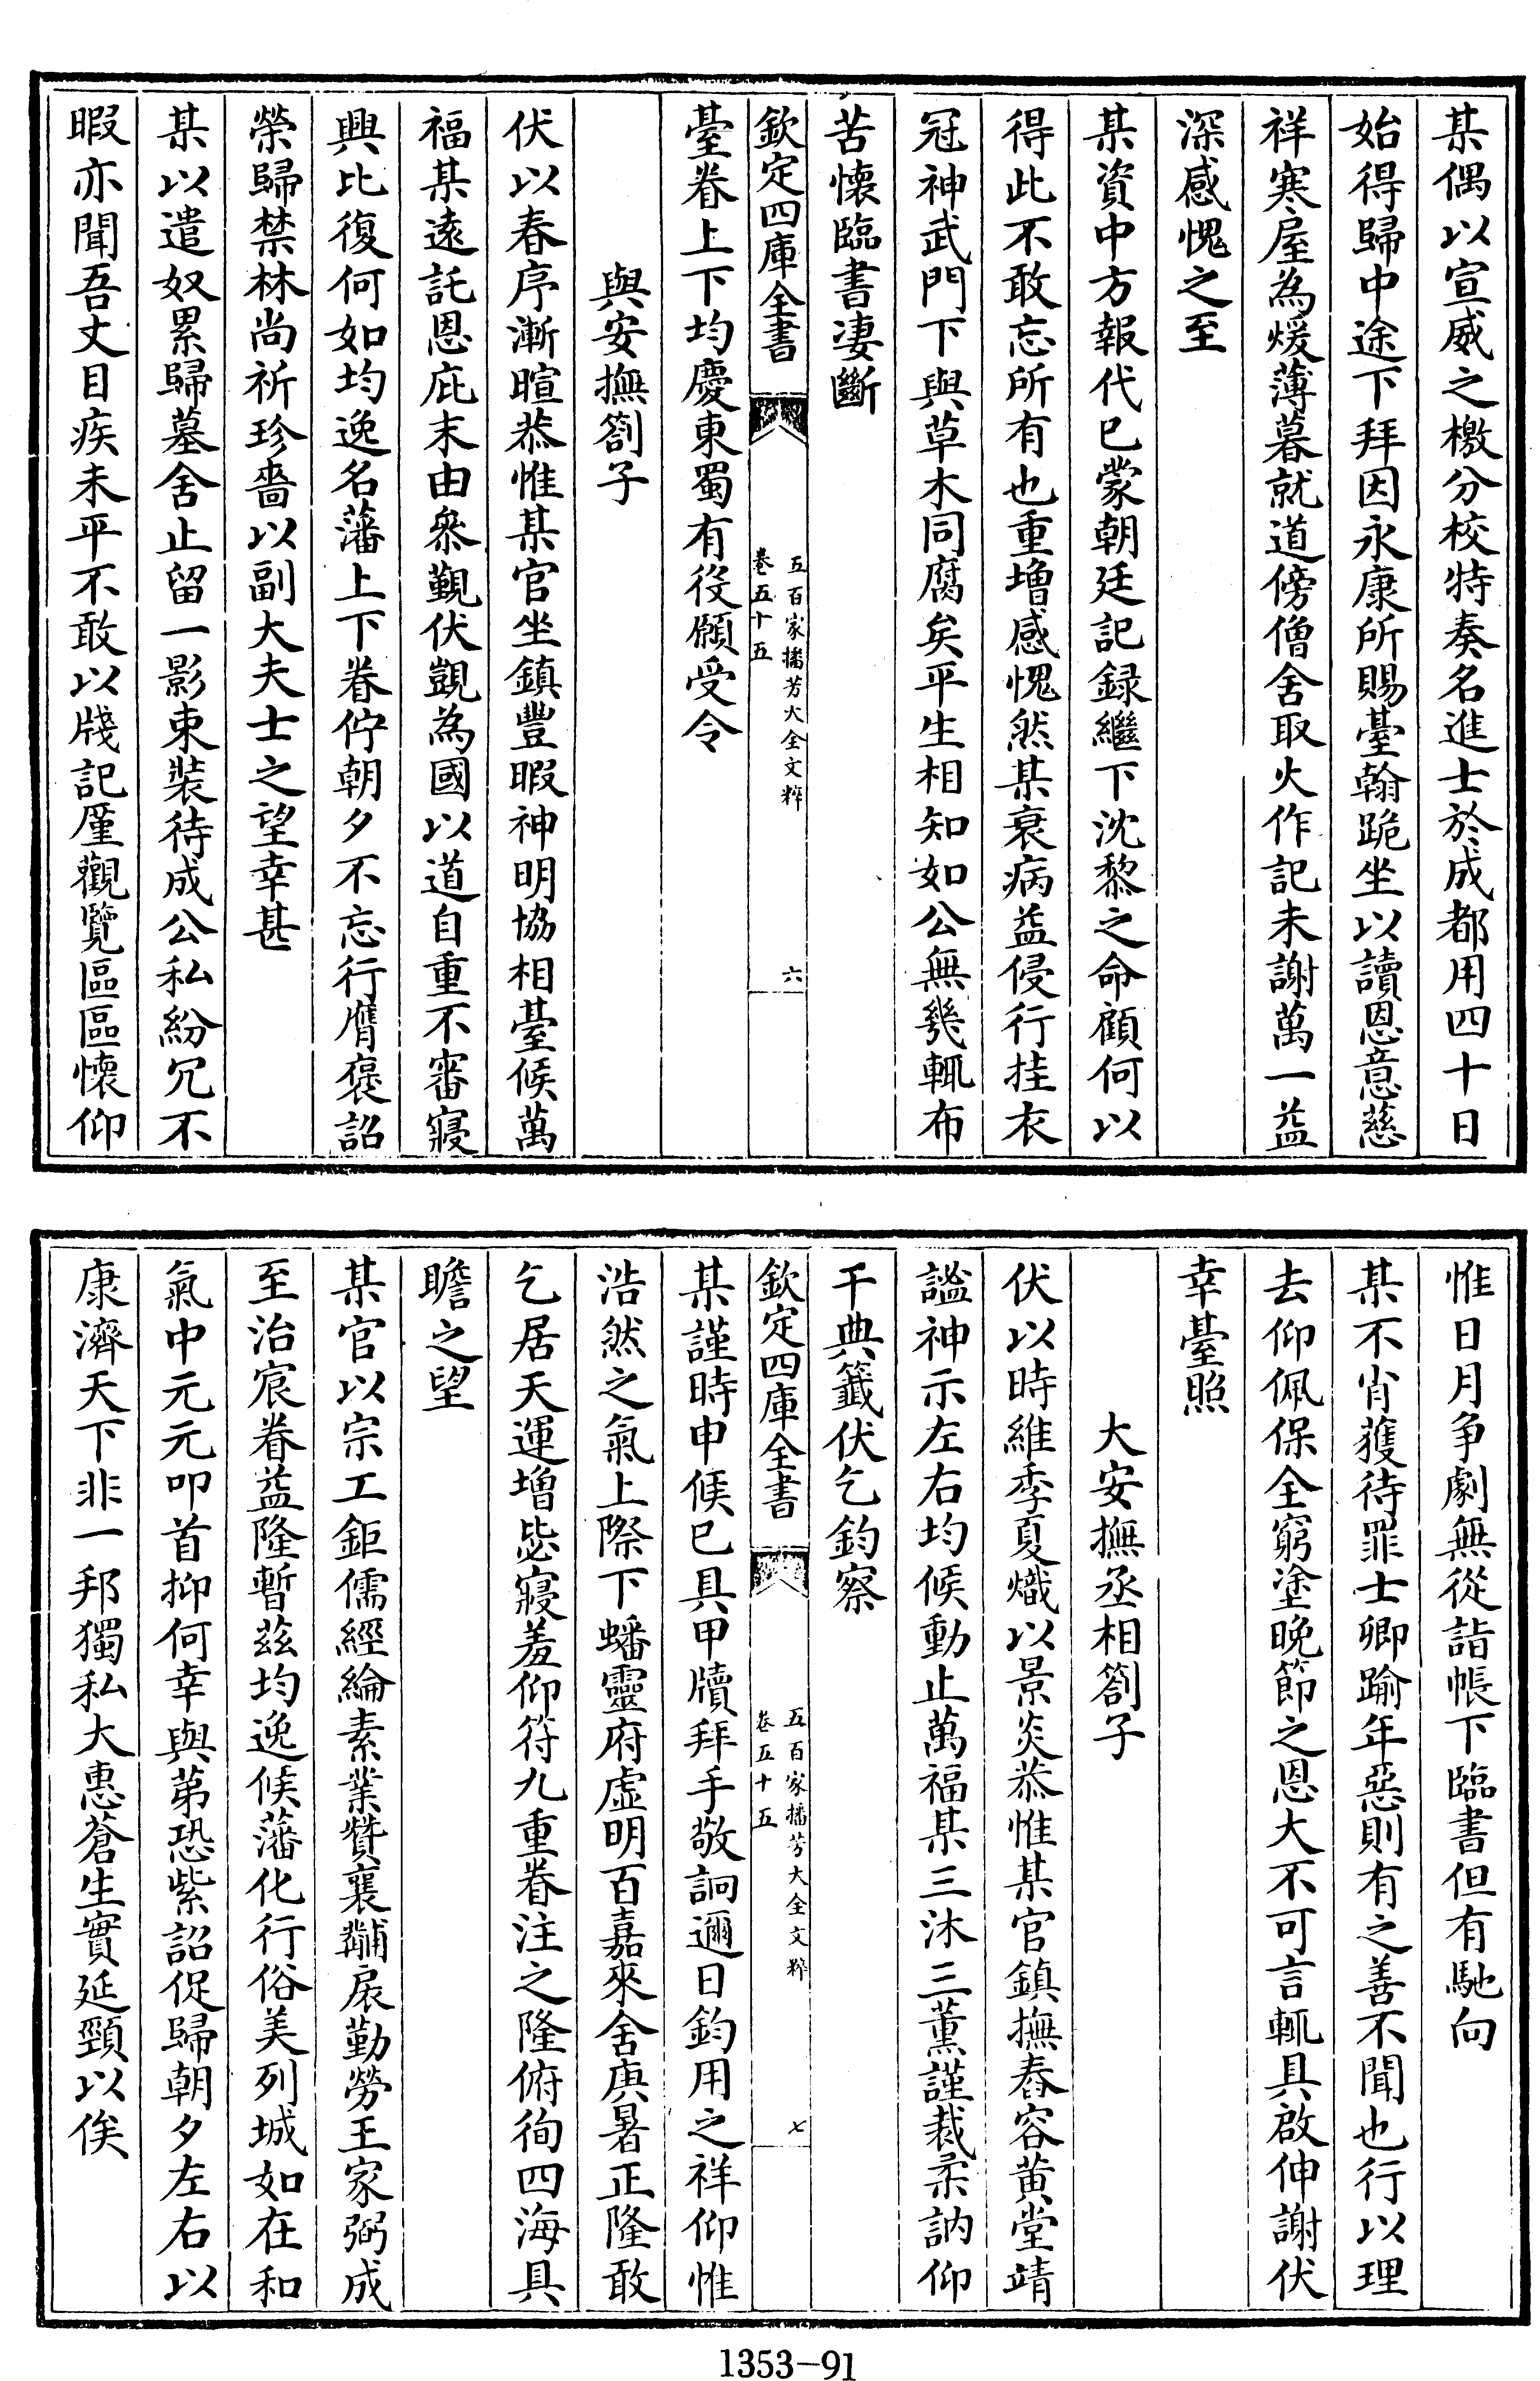 某偶以宣威之檄分校特奏名進士於成都用四十日
始得歸中途下拜因永康所賜臺翰跪坐以讀恩意慈
祥寒屋為煖薄暮就道傍僧舍取火作記未謝萬一益
深感愧之至
某資中方報代已蒙朝廷記録繼下沈黎之命顧何以
得此不敢忘所有也重增感愧然某衰病益侵行挂衣
冠神武門下與草木同腐矣平生相知如公無幾輒布
苦懷臨書凄斷
欽定四庫全書
五百家播芳大全文粹
卷五十五
六
臺眷上下均慶東蜀有役願受令
與安撫劄子
伏以春序漸暄恭惟某官坐鎮豐暇神明協相臺候萬
福某遠託恩庇末由叅覲伏覬為國以道自重不審寢
興比復何如均逸名藩上下眷佇朝夕不忘行膺褒詔
榮歸禁林尚祈珍嗇以副大夫士之望幸甚
某以遣奴累歸墓舍止留一影束裝待成公私紛冗不
暇亦聞吾丈目疾未平不敢以牋記㕓觀覽區區懷仰
惟日月争劇無從詣帳下臨書但有馳向
某不肖獲待罪士卿踰年惡則有之善不聞也行以理
去仰佩保全窮塗晚節之恩大不可言輒具啟伸謝伏
幸臺照
大安撫丞相劄子
伏以時維季夏熾以景炎恭惟某官鎮撫舂容黄堂靖
謐神示左右均候動止萬福某三沐三薫謹裁柔訥仰
干典籖伏乞鈞察
欽定四庫全書
五百家播芳大全文粹
卷五十五
七
某謹時申候已具甲牘拜手敬詗邇日鈞用之祥仰惟
浩然之氣上際下蟠靈府虚明百嘉來舍庚暑正隆敢
乞居天運增毖寢羞仰符九重眷注之隆俯徇四海具
瞻之望
某官以宗工鉅儒經綸素業贊襄黼扆勤勞王家弼成
至治宸眷益隆暫兹均逸候藩化行俗美列城如在和
氣中元元叩首抑何幸與第恐紫詔促歸朝夕左右以
康濟天下非一邦獨私大惠蒼生實延頸以俟
1353-91